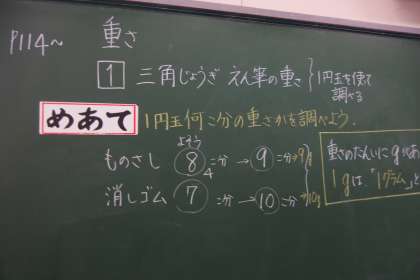 P114~ 重さ
1 三角じょうぎ えん筆の重さ 1円玉を使って
調べる
めあて 1円玉何こ分の重さかを調べよう.
よそう
ものさし 8 こ分 → 9 こ分→9g
4
消しゴム 7 こ分 → 10 こ分→10g
重さのたんいにgがあ
1gは、「1グラム」と